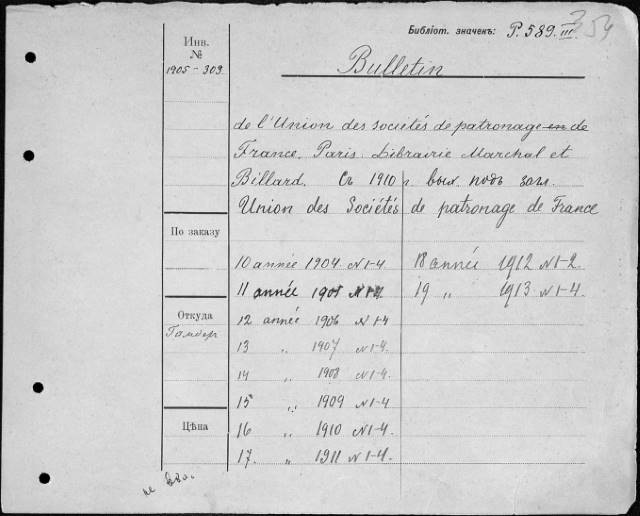 Библіот. значекъ: P. 589. III 354
Инв.
№
1905-303
Bulletin
de l'Union des sociétés de patronage en de
France. Paris. Librairie Marchal et
Billard. Съ 1910 г. вых. подъ загл.
Union des Sociétés de patronage de France
По заказу
10 année 1904 N 1-4 18 année 1912 N 1-2.
11 année 1905 N 1-4 19 „ 1913 N 1-4.
Откуда
12 année 1906 N 1-4
13 „ 1907 N 1-4.
14 „ 1908 N 1-4
15 „ 1909 N 1-4
Цѣна
16 „ 1910 N 1-4.
17. „ 1911 N 1-4.